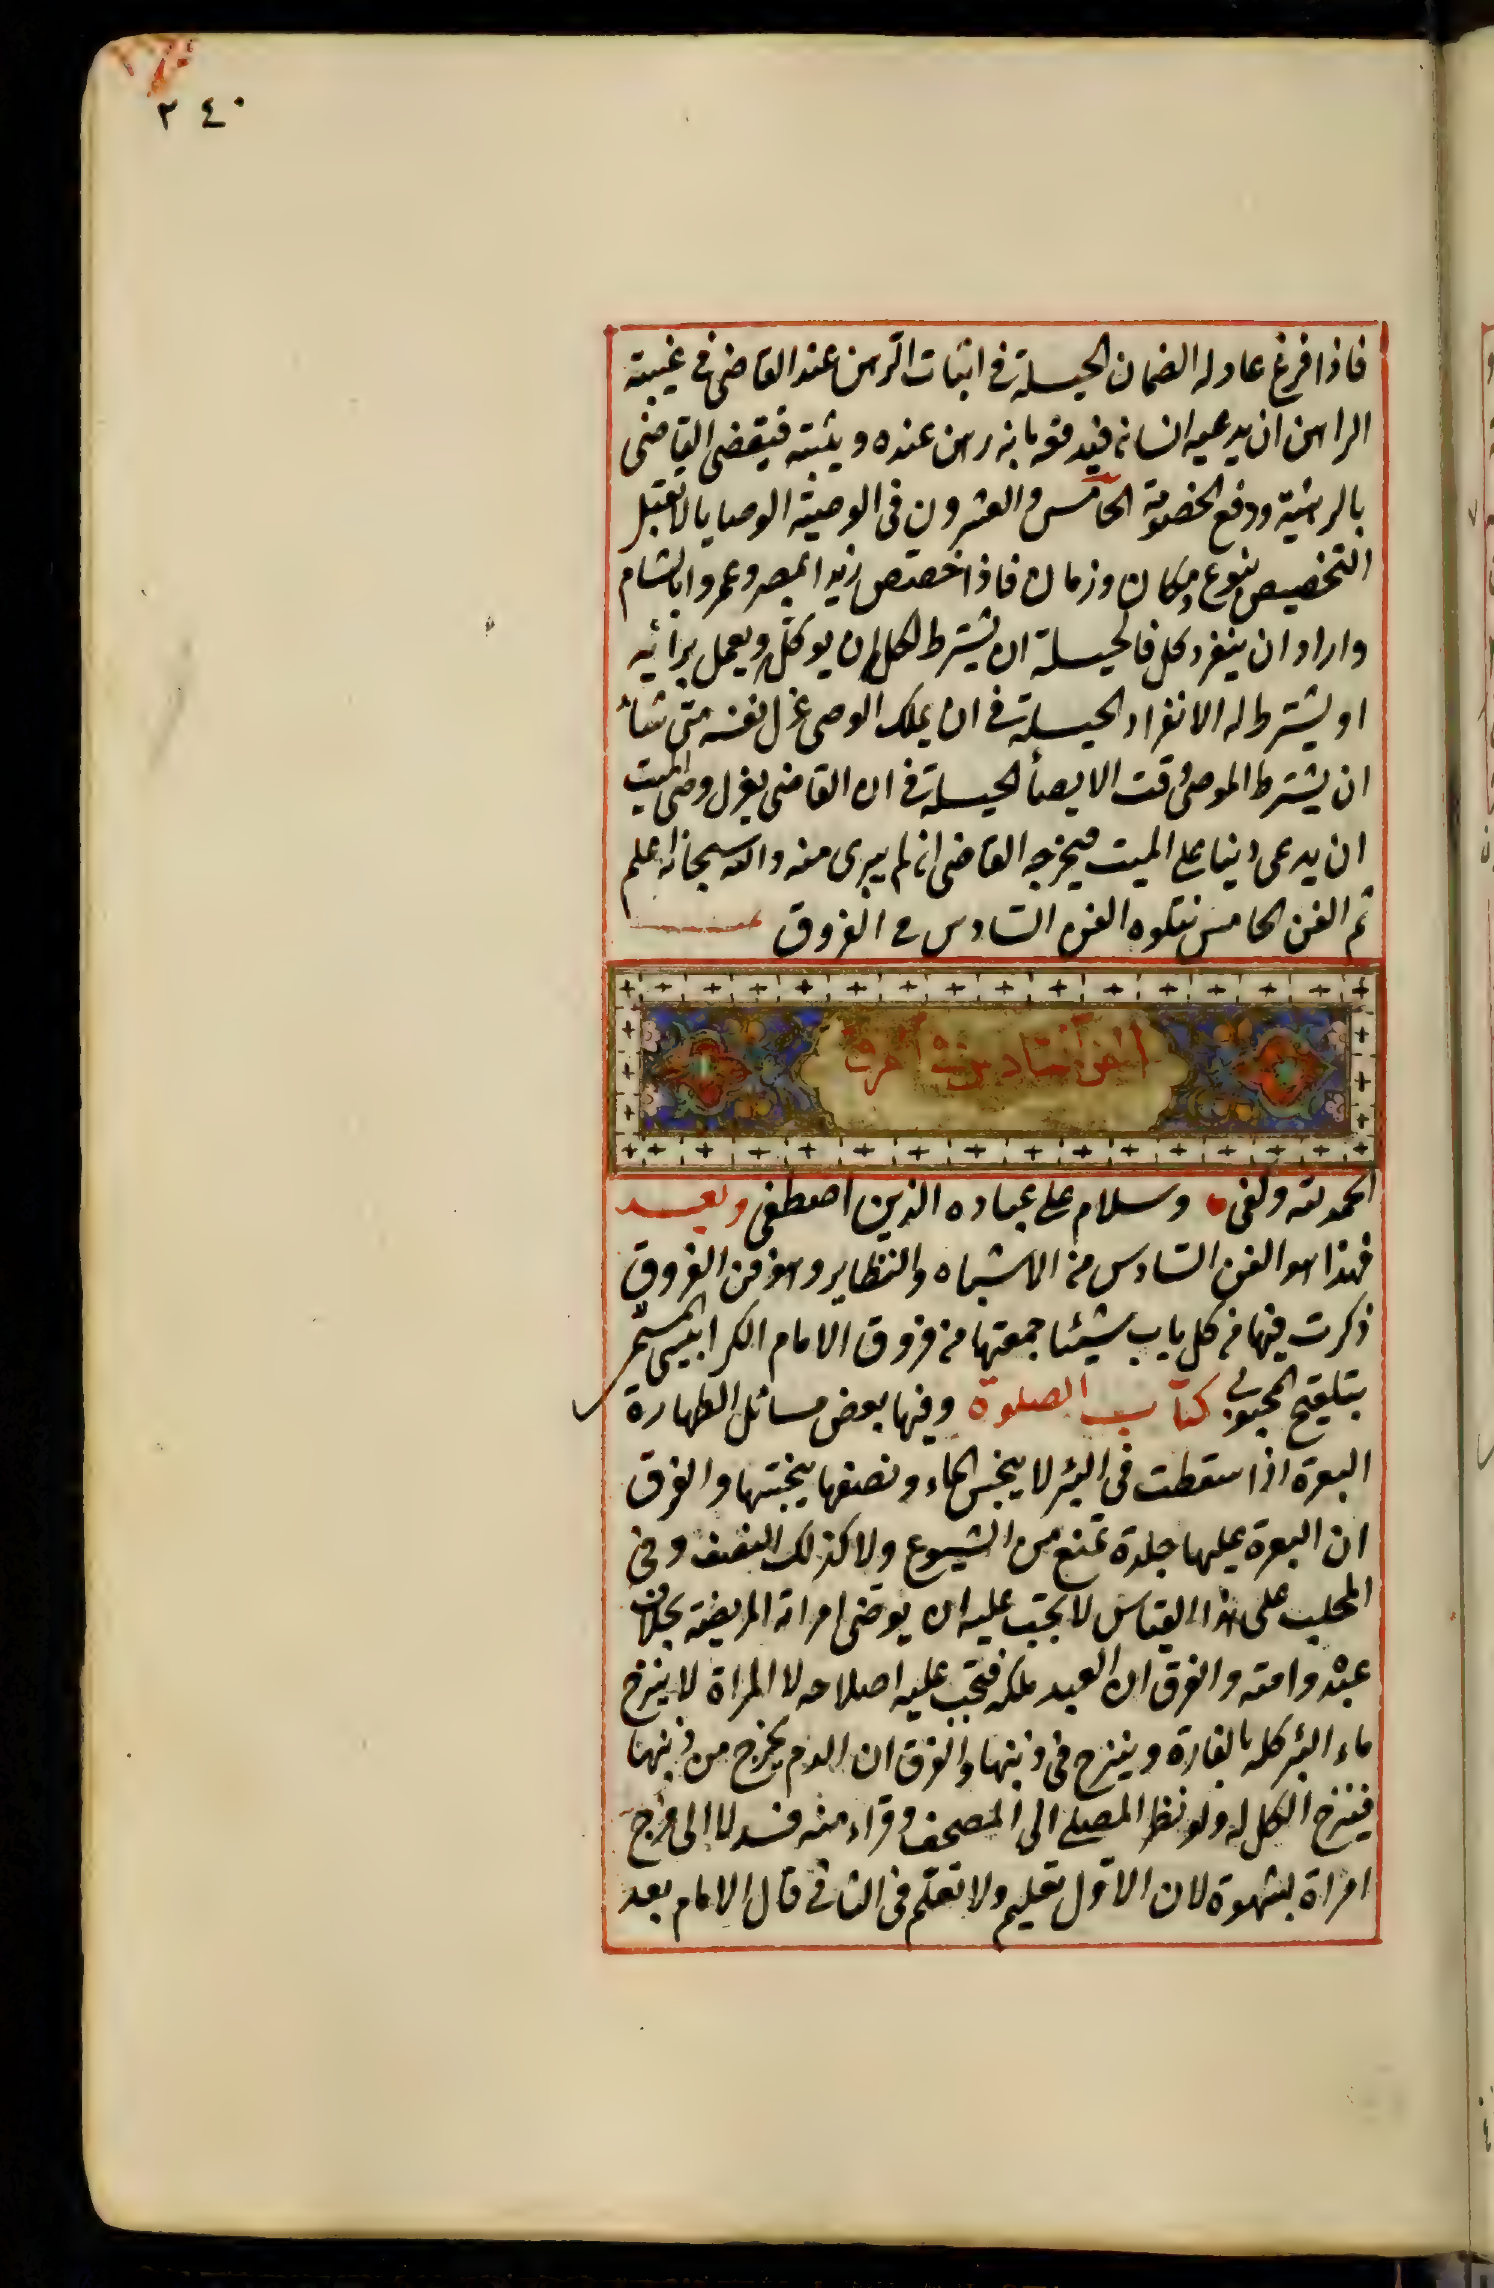 ٢٤٠
فاذا فرغ عاد له الضمان الحيلة في اثبات الرهن عند القاضي في غيبته
الراهن ان يدعيه انسان فيدفعه بانه رهن عنده ويثبته فيقضي القاضي
بالرهنية ودفع الخصومة الخامس والعشرون في الوصية الوصايا لا تقبل
التخصيص بنوع ومكان وزمان فاذا خصص زيدا بمصر وعمروا بالشام
واراد ان ينفرد كل فالحيلة ان يشترط لكل ان يوكل ويعمل برأيه
او يشترط له الانفراد الحيلة في ان يملك الوصي عزل نفسه متى شاء
ان يشترط الموصي وقت الايصاء الحيلة في ان القاضي يعزل وصي الميت
ان يدعي دينا على الميت فيخرجه القاضي ان لم يبرئ منه والله سبحانه اعلم
تم الفن الخامس نتلوه الفن السادس في الفروق
الفن السادس في الفروق
الحمد لله وكفى وسلام على عباده الذين اصطفى وبعد
فهذا هو الفن السادس من الاشباه والنظاير وهو فن الفروق
ذكرت فيها من كل باب شيئا جمعتها من فروق الامام الكرابيسي المسمى
بتلقيح المحبوبي كتاب الصلوة وفيها بعض مسائل الطهارة
البعرة اذا سقطت في البئر لا ينجس الماء ونصفها ينجسها والفرق
ان البعرة عليها جلدة تمنع من الشيوع ولا كذلك النصف وفي
المحلب على هذا القياس لا يجب عليه ان يوضي امراته المريضة بخلاف
عبده وامته والفرق ان العبد ملكه فتجب عليه اصلاحه لا المراة لا ينزح
ماء البئر كله بالفارة وينزح في ذنبها والفرق ان الدم يخرج من ذنبها
فينزح الكل له ولو نظر المصلي الى المصحف وقراء منه فسد لا الى فرج
امراة بشهوة لان الاول تعليم ولا تعلم في الثاني قال الامام بعد